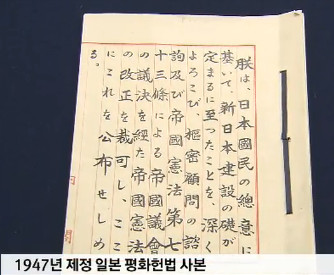 朕は、日本國民の總意に
基いて、新日本建設の礎が
定まるに至つたことを、深く
よろこび、樞密顧問の諮
詢及び帝國憲法第七
十三條による帝國議會
の議決を經た帝國憲法
の改正を裁可し、ここ
にこれを公布せしめ
る。
1947년 제정 일본 평화헌법 사본